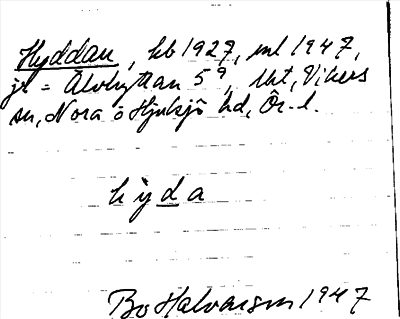 Hyddan, kb 1927, ml 1947,
jl = Älvhyttan 5⁹, Ukt, Vikers
sn, Nora o Hjulsjö hd, Ör. l.
hy̆da
Bo Halvarsson 1947